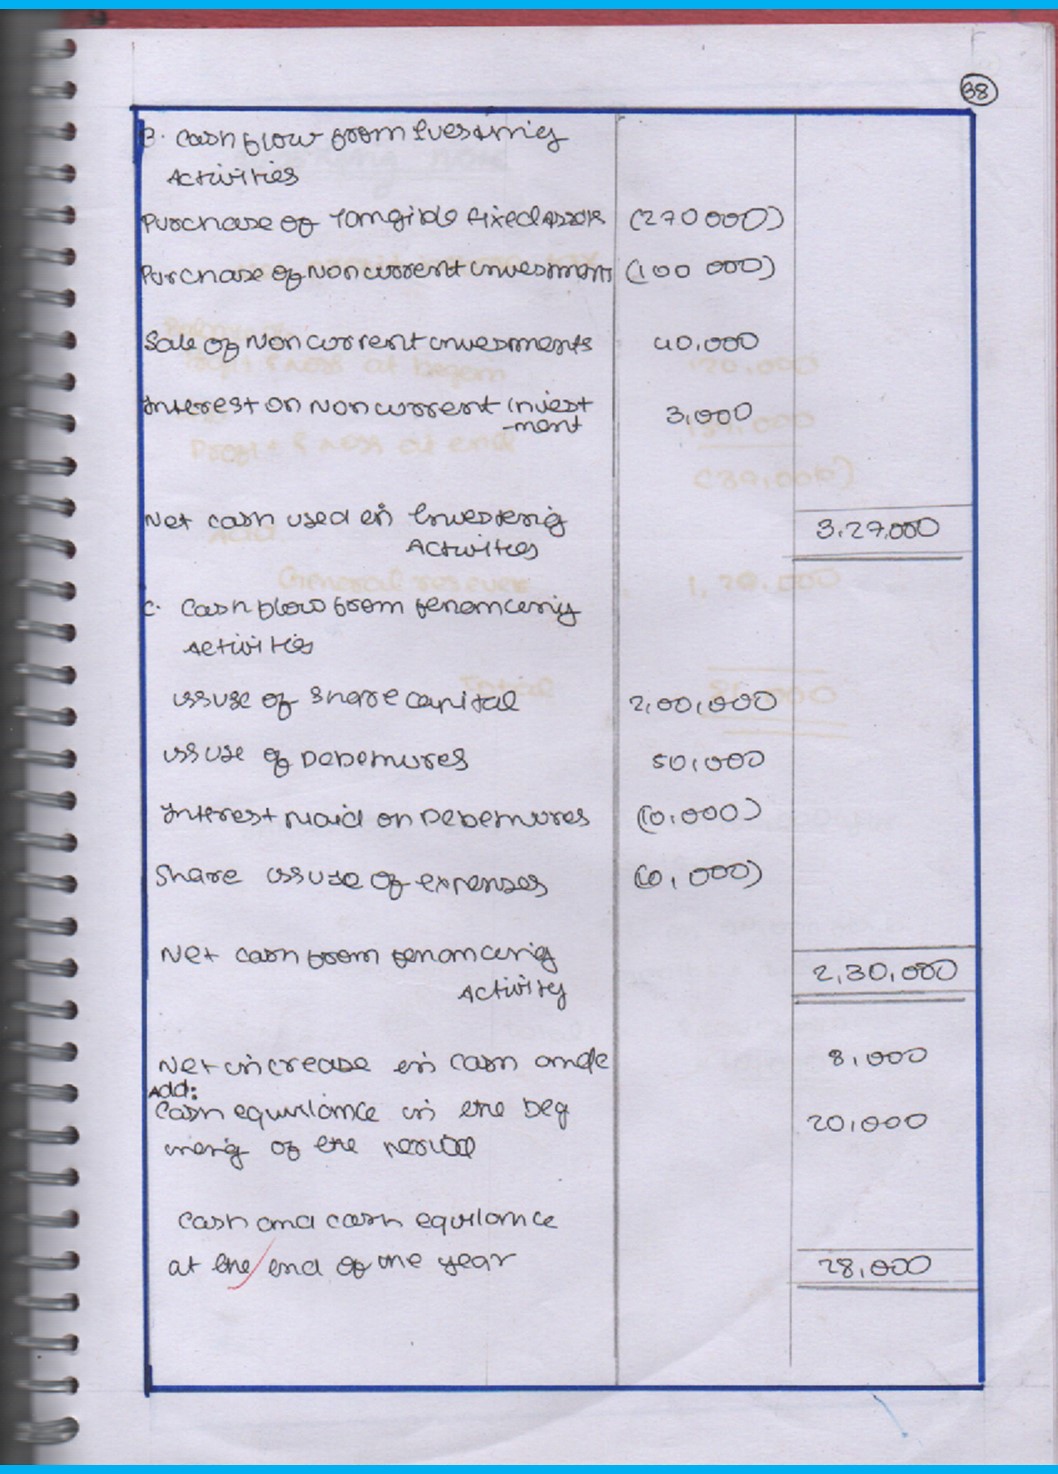 38
B. Cash flow from Investing
Activities
Purchase of Tangible fixed Assets (270 000)
Purchase of Non current investment (100 000)
Sale of Non current investments 40,000
Interest on Non current invest 3,000
-ment
Net cash used in Investing 3,27,000
Activities
C. Cash flow from fenancing
Activities
issue of share capital 2,00,000
issue of Debentures 50,000
Interest paid on Debentures (10,000)
Share issuse of expenses (10,000)
Net cash from fenancing 2,30,000
Activity
Net increase in cash and 8,000
Add:
Cash equvilance in the beg 20,000
ining of the period
Cash and cash equilance
at the end of the year 28,000